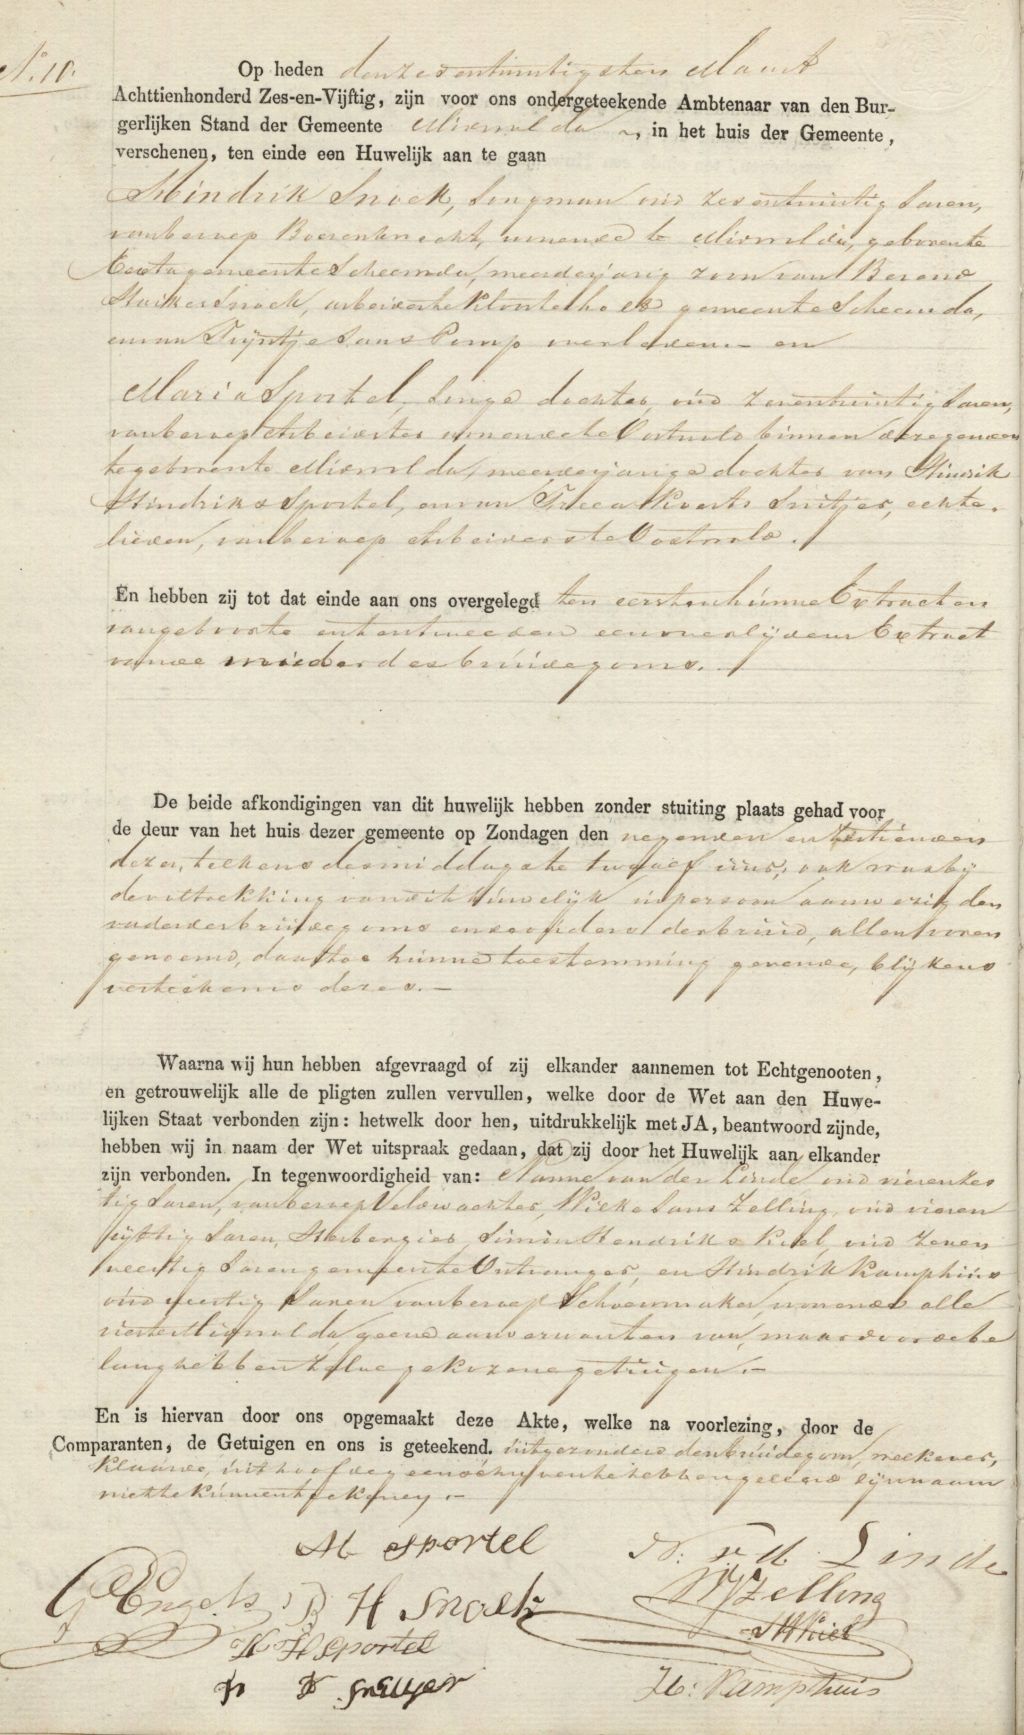 N.o 10.
Op heden den zesentwintigsten Maart
Achttienhonderd Zes-en-Vijftig, zijn voor ons ondergeteekende Ambtenaar van den Bur-
gerlijken Stand der Gemeente Midwolda, in het huis der Gemeente,
verschenen, ten einde een Huwelijk aan te gaan
Hindrik Snoek, Jongman oud zesentwintig Jaren,
van beroep Boerenknecht, wonende te Midwolda, geboren te
Eexta gemeente Scheemda, meerderjarig zoon van Berend
Harkes Snoek, arbeider te Kloosterholt gemeente Scheemda,
en van Trijntje Jans Pomp overleden. — en
Maria Sportel, Jonge dochter, oud zeventwintig Jaren,
van beroep Arbeidster wonende te Oostwold binnen deze gemeen
te geboren te Midwolda, meerderjarige dochter van Hindrik
Hindriks Sportel, en van Everts Snitjer, echte-
lieden, van beroep Arbeiders te Oostwold.
En hebben zij tot dat einde aan ons overgelegd ten eersten hunne Extracten
van geboorte en ten tweeden een overlijdens Extract
van de moeder des bruidegoms.
De beide afkondigingen van dit huwelijk hebben zonder stuiting plaats gehad voor
de deur van het huis dezer gemeente op Zondagen den negenden en zestienden
dezer, telkens des middags te twaalf uur, ook was bij
de voltrekking van dit huwelijk in persoon aanwezig den
vader der bruidegoms en de ouders der bruid, allen voren
genoemd, daartoe hunne toestemming gevende, blijkens
verteekenis dezes. —
Waarna wij hun hebben afgevraagd of zij elkander aannemen tot Echtgenooten,
en getrouwelijk alle de pligten zullen vervullen, welke door de Wet aan den Huwe-
lijken Staat verbonden zijn: hetwelk door hen, uitdrukkelijk met JA, beantwoord zijnde,
hebben wij in naam der Wet uitspraak gedaan, dat zij door het Huwelijk aan elkander
zijn verbonden. In tegenwoordigheid van: Nanne van der Linde oud vierentes
tig Jaren, van beroep Veldwachter, Wieke Jans Zelling, oud vieren
vijftig Jaren, Herbergier, Simon Hendriks Kiel, oud zeven
veertig Jaren gemeente Ontvanger, en Hindrik Kamphuis
oud veertig Jaren van beroep Schoenmaker, wonende alle
vier te Midwolda, geene aanverwanten van, maar door de be
langhebbenden zelve gekozene getuigen. —
En is hiervan door ons opgemaakt deze Akte, welke na voorlezing, door de
Comparanten, de Getuigen en ons is geteekend. uitgezonderd den bruidegom, welke ver,
klaarde, uit hoofde geen schrijven te hebben geleerd zijn naam
niet te kunnen teekenen. —
M Sportel
N: v. d. Linde
G Engels
B H Snoek
W J Zelling
S H Kiel
H H Sportel
H: Kamphuis